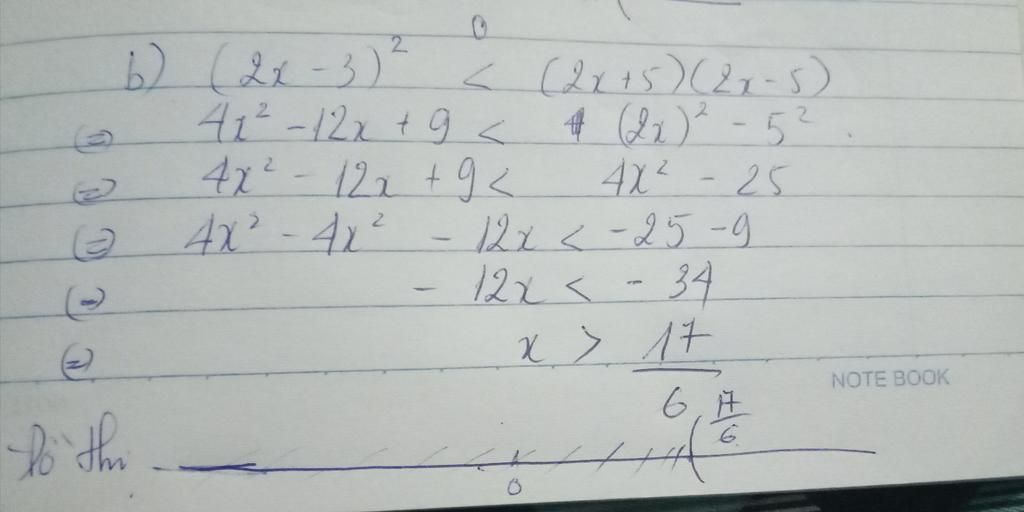 b) (2x - 3)² < (2x+5)(2x-5)
(=) 4x² - 12x + 9 < (2x)² - 5².
(=) 4x² - 12x + 9 < 4x² - 25
(=) 4x² - 4x² - 12x < -25 - 9
(=) - 12x < - 34
(=) x > 17/6
NOTE BOOK
Đồ thị
17/6
0